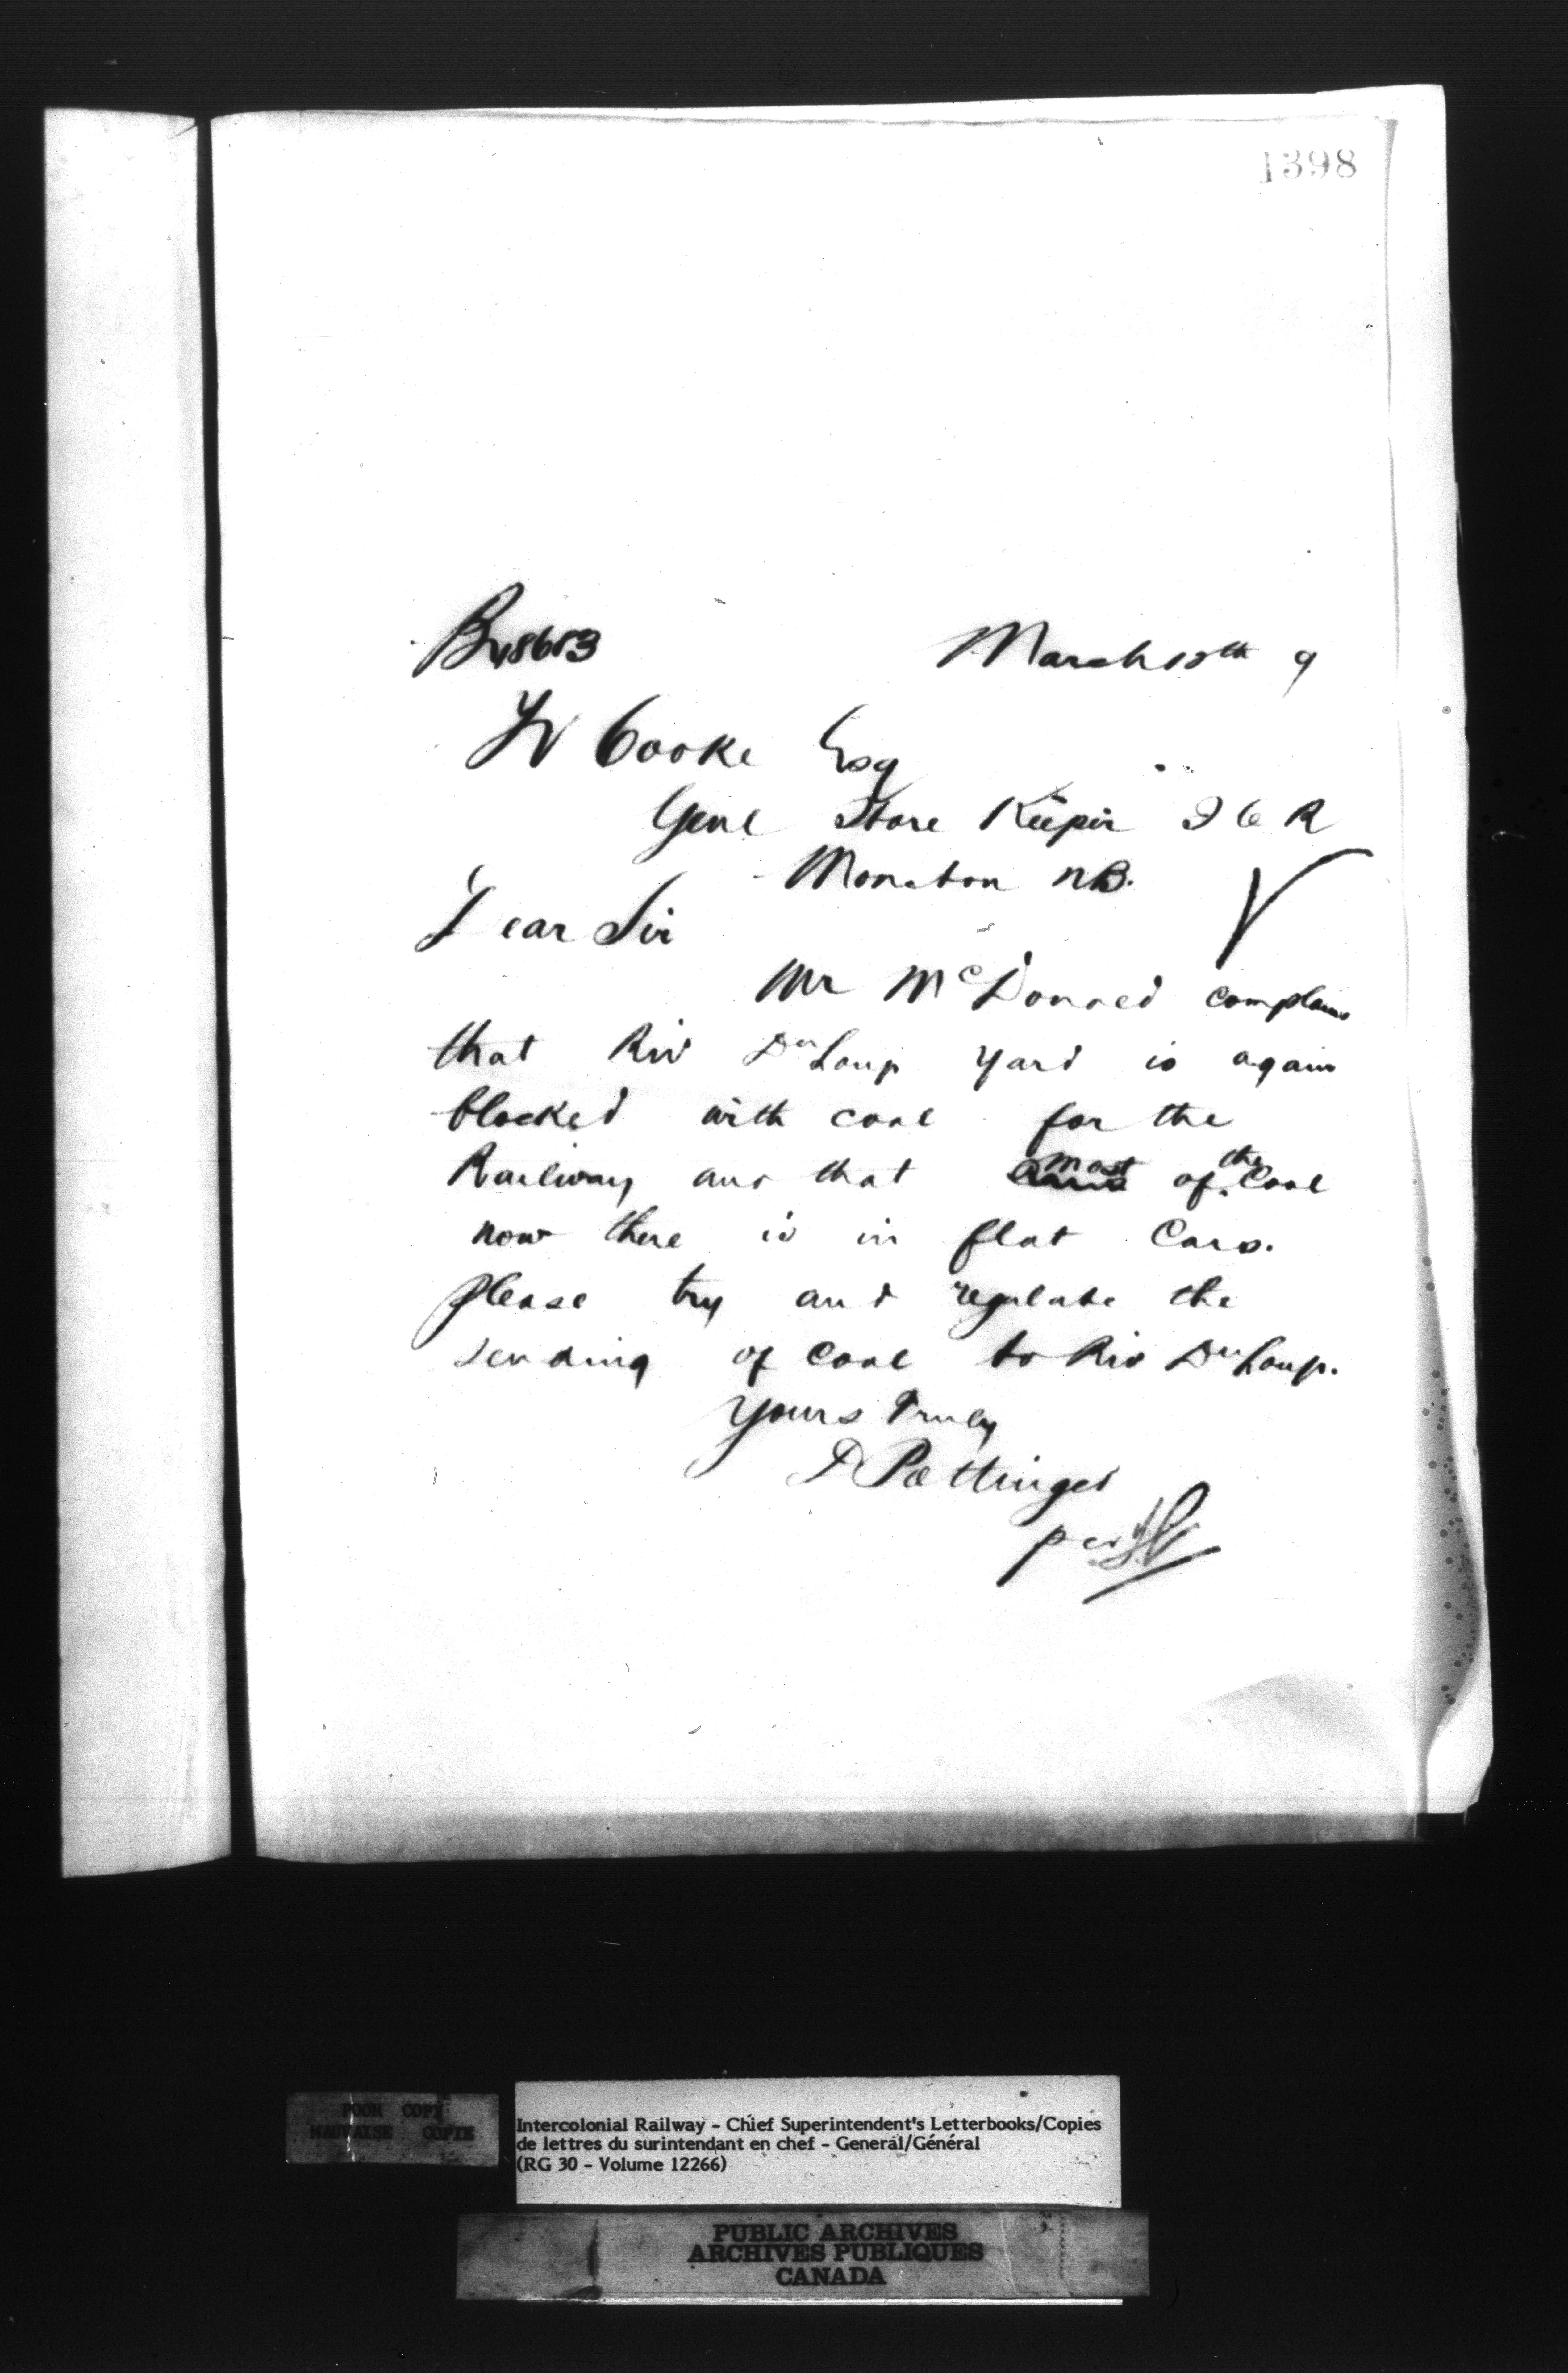 1398
March 18th 9
Cooke Esq
Genl Store Keeper I C R
Moncton NB.
Dear Sir
Mr McDonald complains
that Riv Du Loup yard is again
blocked with coal for the
Railway and that most of the Coal
now there is in flat Cars.
Please try and regulate the
sending of Coal to Riv Du Loup.
Yours Truly
D Pottinger
per
POOR COPY
MAUVAISE COPIE
Intercolonial Railway - Chief Superintendent's Letterbooks/Copies
de lettres du surintendant en chef - General/Général
(RG 30 - Volume 12266)
PUBLIC ARCHIVES
ARCHIVES PUBLIQUES
CANADA